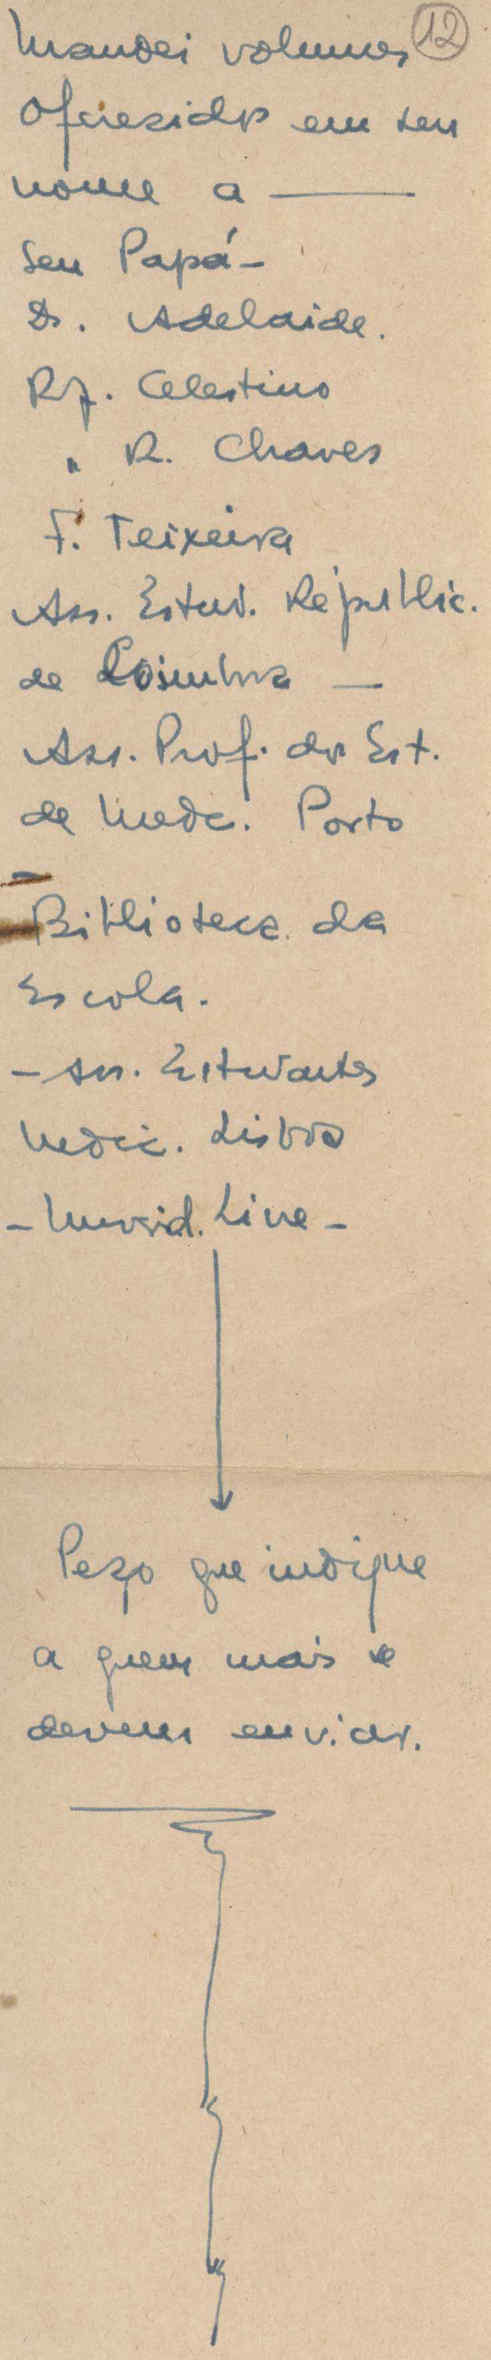 12
Mandei volumes
oferecidos em seu
nome a ———
Seu Papá -
D. Adelaide.
Rf. Celestino
" R. Chaves
F. Teixeira
Ass. Estud. Républic.
de Coimbra —
Ass. Prof. dos Est.
de Medc. Porto
-
Biblioteca da
Escola.
- Ass. Estudantes
Medic. Lisboa
- Livre -
Peço que indique
a quem mais se
devem enviar.